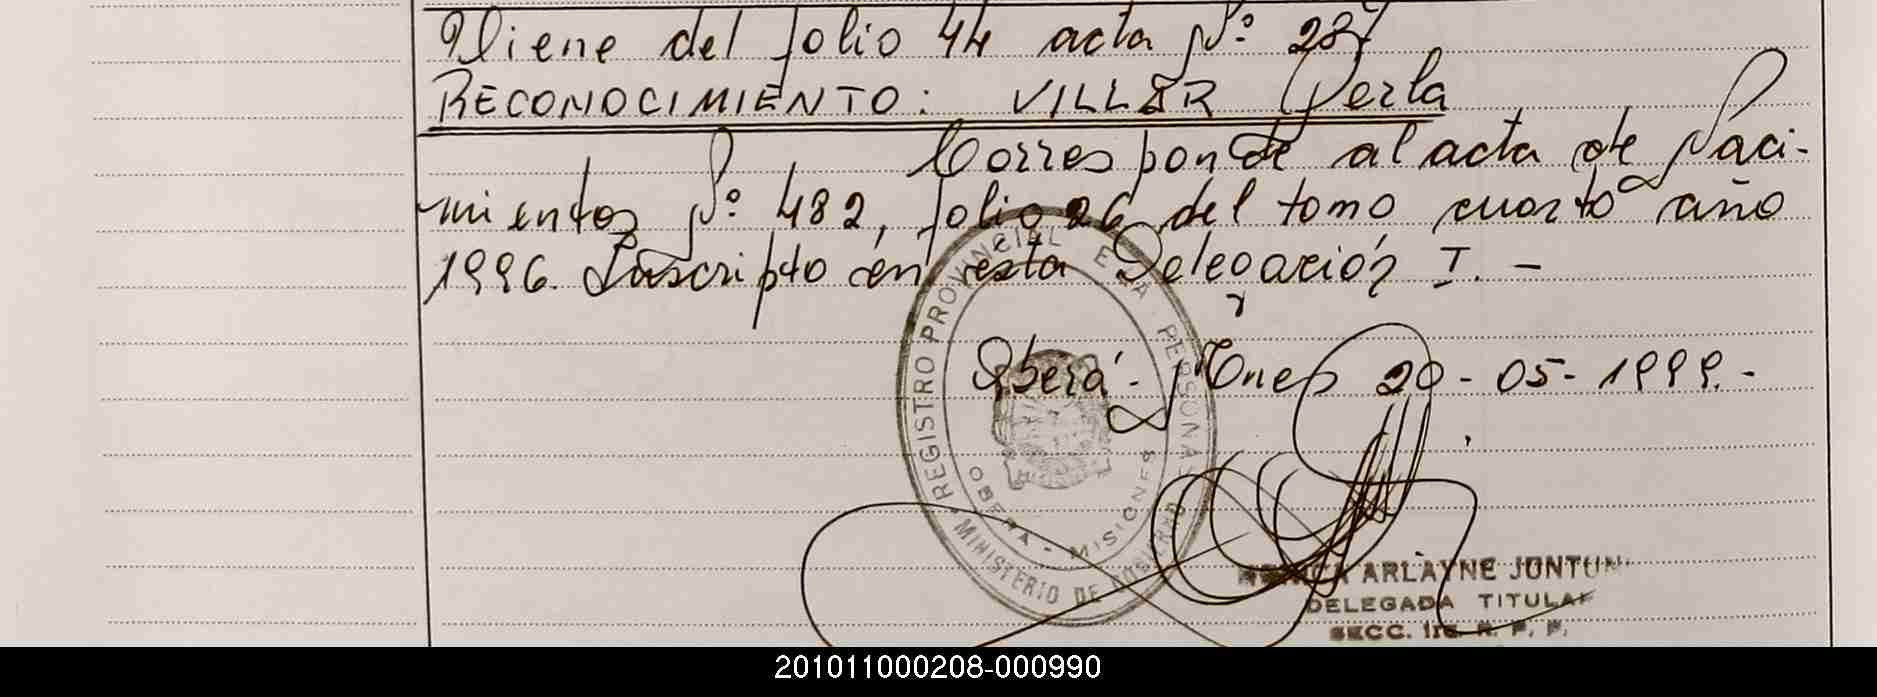 Viene del folio 44 acta Nº 287
RECONOCIMIENTO: VILLAR Perla
Corresponde al acta de Naci-
mientos Nº 482, folio 26 del tomo cuarto año
1996. Inscripto en esta Delegación I. -
Oberá - Mnes 20 - 05 - 1999. -
REGISTRO PROVINCIAL DE LA PERSONAS
OBERA - MISIONES
MINISTERIO DE GOBIERNO
ARLAYNE JUNTUN
DELEGADA TITULAR
SECC. 1ra. R. P. P.
201011000208-000990